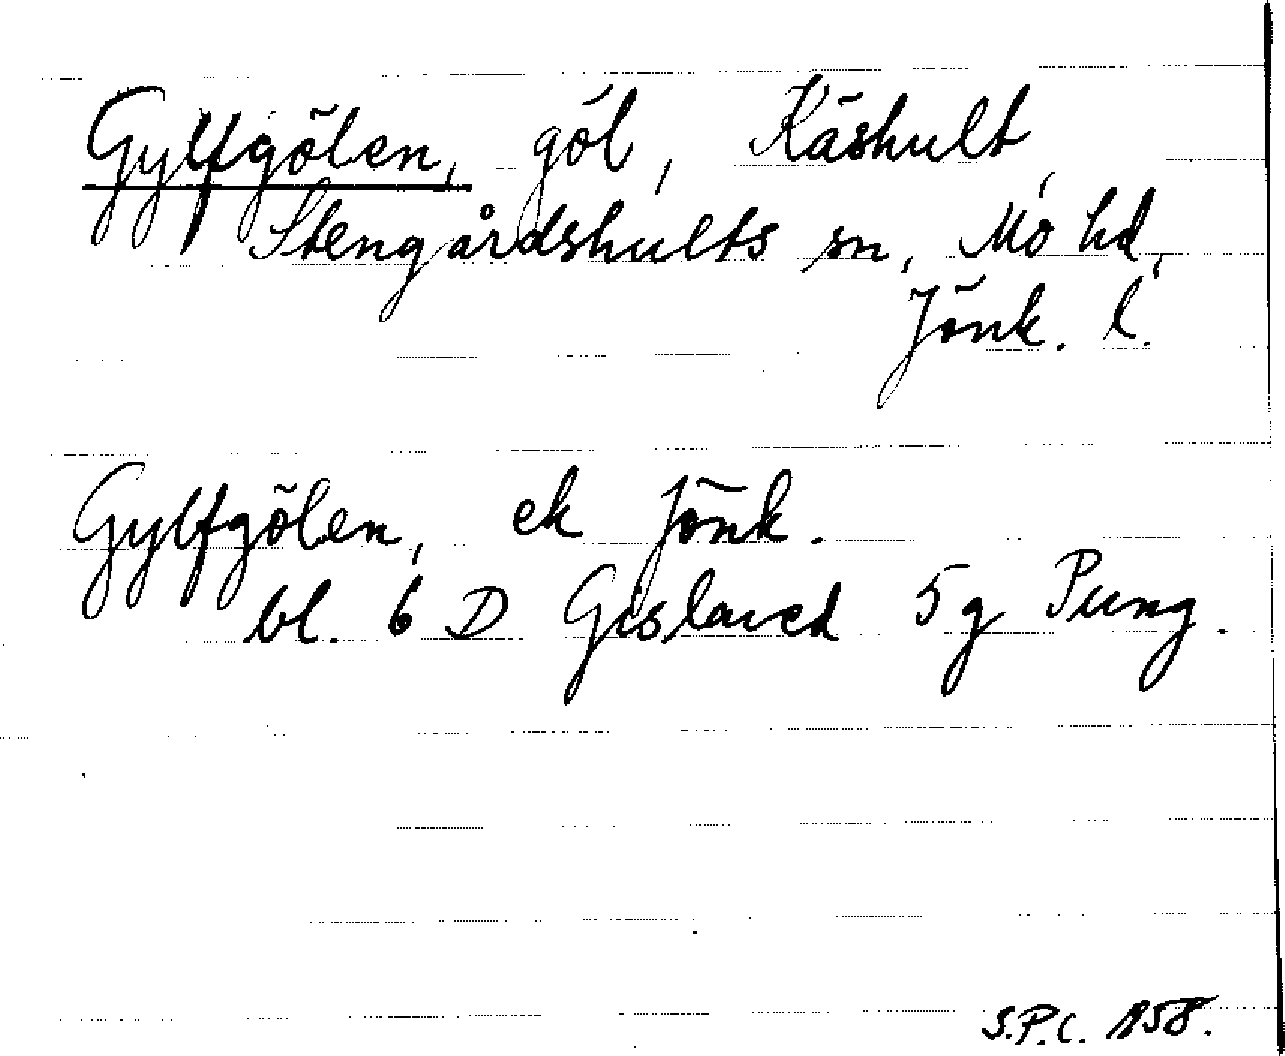 Gylfgölen, göl, Käshult,
Stengårdshults sn, Mo hd,
Jönk. l.
Gylfgölen, ek Jönk.
bl. 6 D Gislaved 5 g Pung.
S.P.C. 1958.